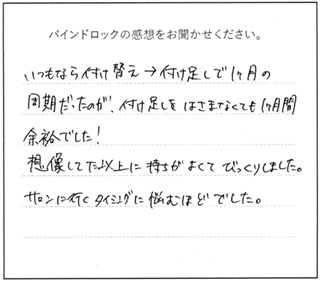 バインドロックの感想をお聞かせください。
いつもなら付け替え→付け足しで1ヶ月の
周期だったのが、付け足しをはさまなくても1ヶ月間
余裕でした!
想像してた以上に持ちがよくてびっくりしました。
サロンに行くタイミングに悩むほどでした。